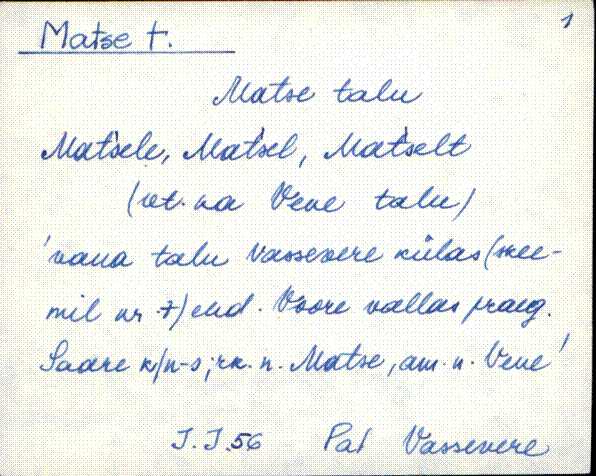 1
Matse t.
Matse talu
Matsele, Matsel, Matselt
(vt. ka Vene talu)
'vana talu Vassevere külas (skee-
mil nr. 7) end. Voore vallas praeg.
Saare k/n-s; rk. n. Matse, am. n. Vene'
J. J. 56 Pal Vassevere